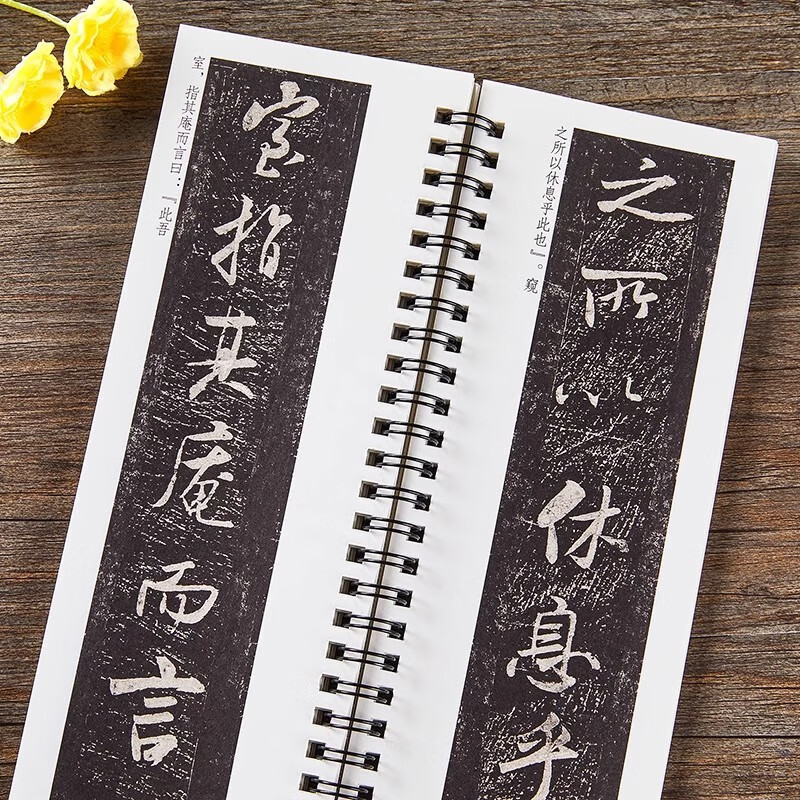 室，指其庵而言曰：『此吾
室指其庵而言
之所以休息乎此也』。窺
之所以休息乎